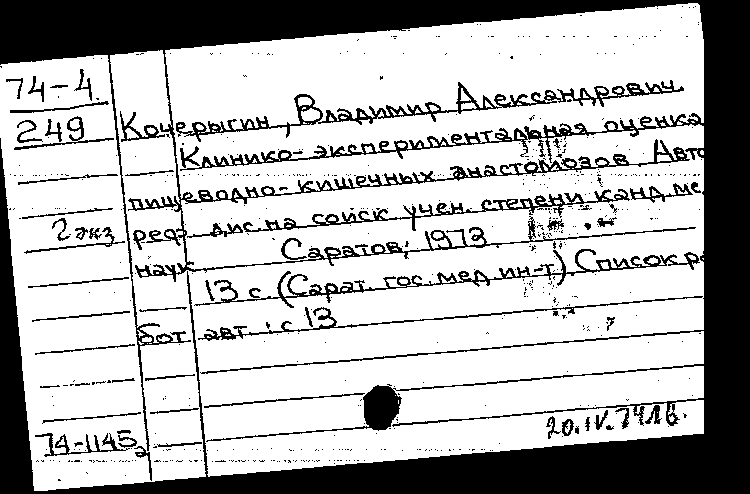 74-4
249
Кочерыгин, Владимир Александрович.
Клинико-экспериментальная оценка
пищеводно-кишечных анастомозов. Авто
2 экз реф. дис. на соиск учен. степени канд. ме
наук. Саратов, 1973.
13 с. (Сарат. гос. мед. ин-т). Список ра
бот авт.: с 13
74-11452